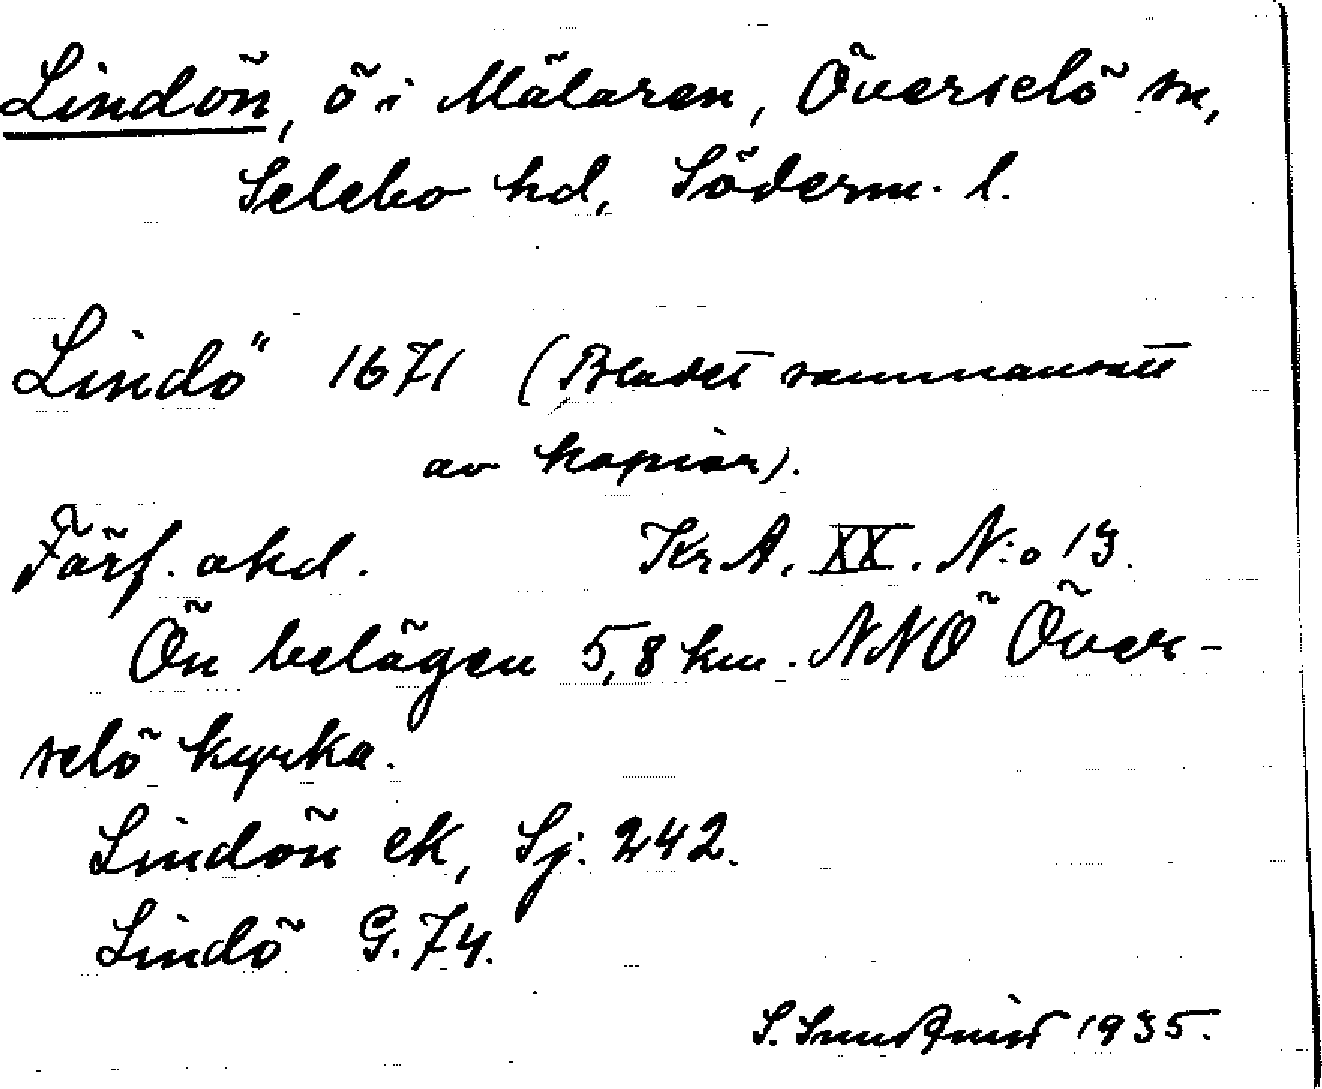 Lindön, ö i Mälaren, Överselö sn,
Selebo hd, Söderm. l.
Lindö 1671 (Bladet sammansatt
av kopior).
Förf. okd. Kr A. XX. N:o 13.
Ön belägen 5,8 km. NNÖ Över-
selö kyrka.
Lindön ek, Sj. 242.
Lindö G. 74.
S. Sundquist 1935.